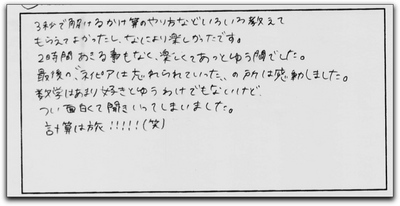 3秒で解けるかけ算のやり方などいろいろ教えて
もらえてよかったし、なにより楽しかったです。
2時間あきる事もなく、楽しくてあっとゆう間でした。
最後の、は忘れられていった、の所は感動しました。
数学はあまり好きとゆうわけでもないけど、
つい面白くて聞きいってしまいました。
計算は旅!!!!!(笑)